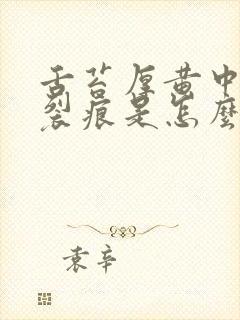 舌苔厚黄中
裂痕是怎麽
袁辛